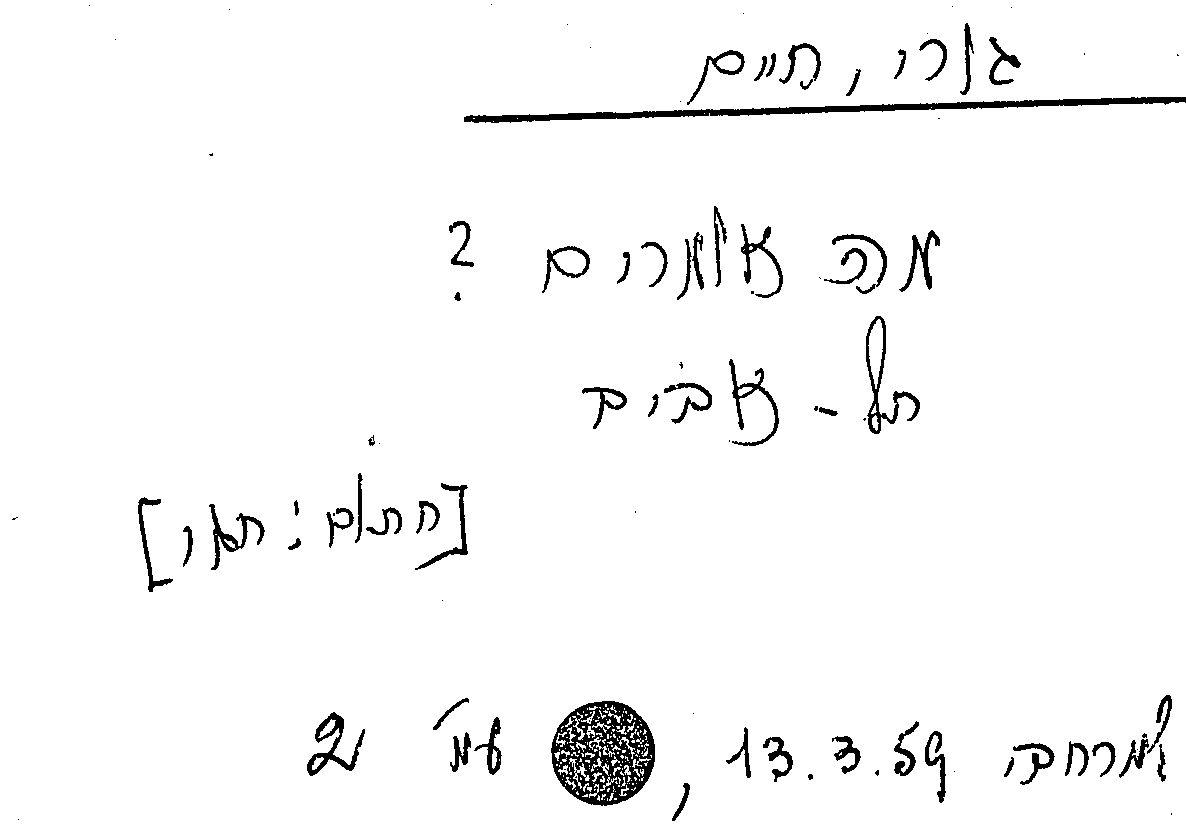 גורי, חיים
מה אומרים ?
תל-אביב
[חתום: חגי]
למרחב, 13.3.59, עמ' 2